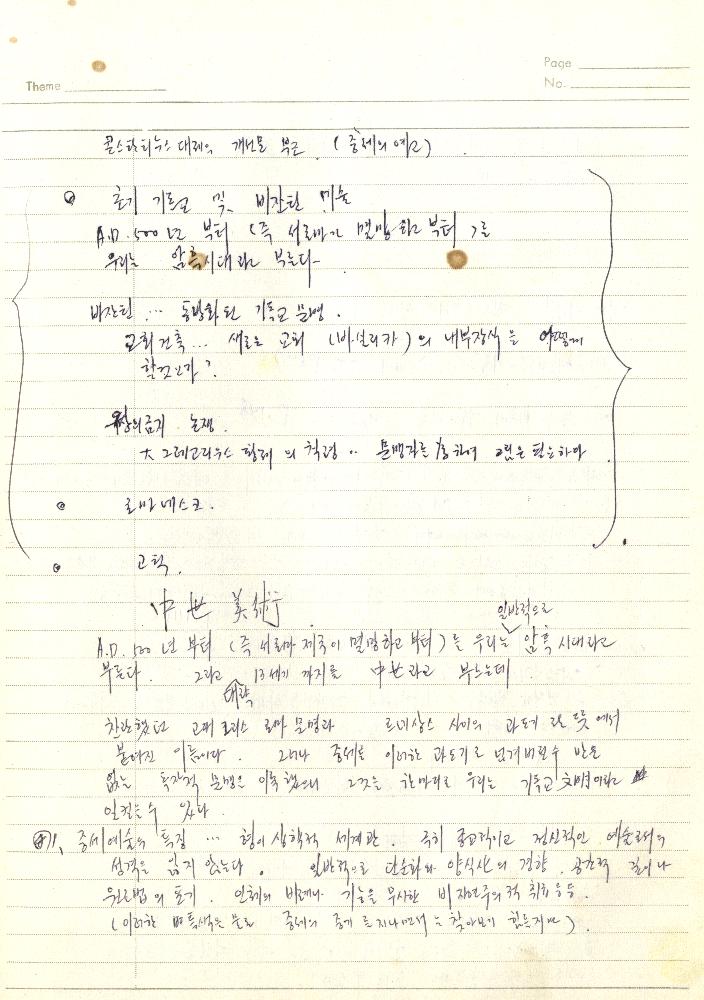 Page
Theme
No.
콘스탄티누스 대제의 개선문 부근 (중세의 예고)
초기 기독교 및 비잔틴 미술
A.D. 500년 부터 (즉 서로마가 멸망하고부터)를
우리는 암흑시대라고 부른다
비잔틴 … 동방화된 기독교 문명.
교회건축 … 새로운 교회 (바실리카)의 내부장식을 어떻게
할것인가?
상의금지 논쟁.
大 그레고리우스 황제의 칙령 .. 문맹자를 위하여 그림은 필요하다
로마네스크.
고딕.
中世 美術
일반적으로
A.D. 500년 부터 (즉 서로마 제국이 멸망하고 부터)를 우리는 암흑시대라고
부른다. 그리고 13세기 까지를 中世라고 부르는데
대략
찬란했던 고대 그리스 로마 문명과 르네상스 사이의 과도기란 뜻에서
붙여진 이름이다. 그러나 중세를 이러한 과도기로 넘겨버릴수 만은
없는 독자적 문명을 이룩했으니 그것은 한마디로 우리는 기독교文明이라고
일컬을수 있다.
1. 중세예술의 특징 … 형이상학적 세계관. 극히 종교적이고 정신적인 예술로서의
성격을 잃지 않는다. 일반적으로 단순화와 양식상의 경향. 공간적 깊이나
원근법의 포기. 인체의 비례나 기능을 무시한 비자연주의적 취급 등등.
(이러한 특색은 물론 중세의 중기를 지나면서는 찾아보기 힘든지만).